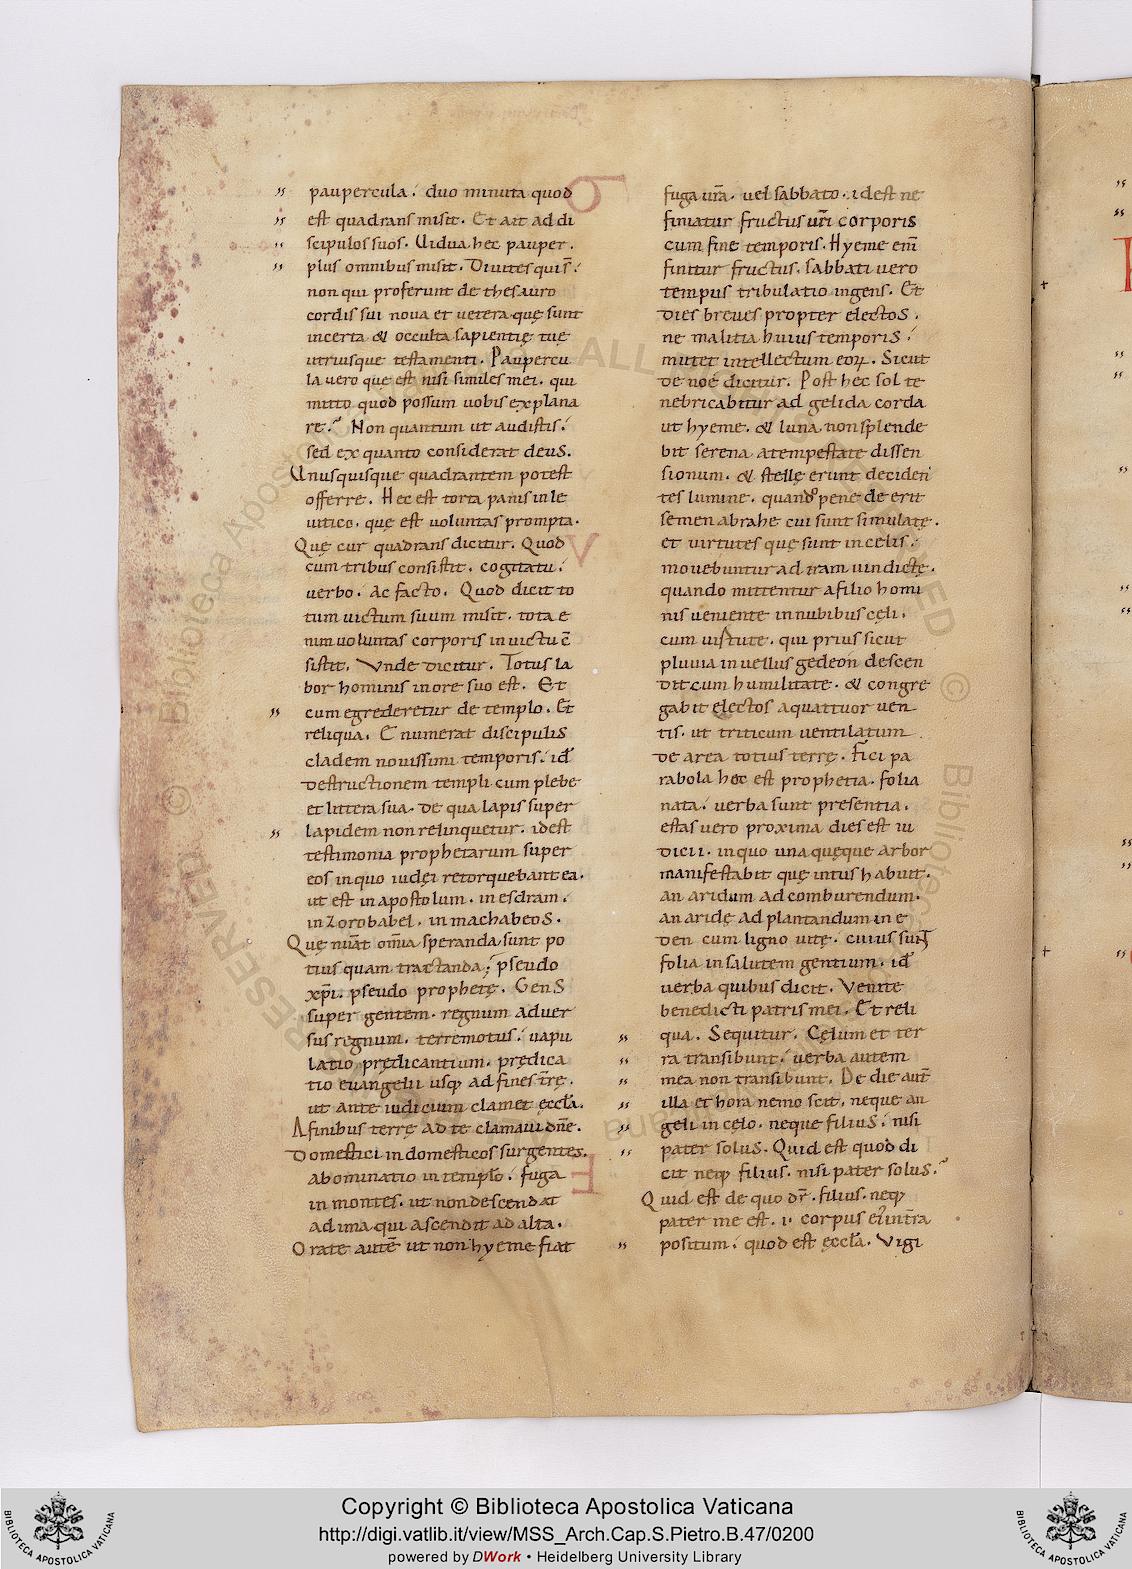 paupercula. duo minuta quod
est quadrans misit. Et ait ad di
scipulos suos. Uidua hec pauper.
plus omnibus misit. Diuites qui s̄.
non qui proferunt de thesauro
cordis sui noua et uetera quę sunt
incerta & occulta sapientię tuę
utriusque testamenti. Paupercu
la uero que est nisi similes mei. qui
mitto quod possum uobis explana
re. Non quantum ut audistis.
sed ex quanto considerat deus.
Unusquisque quadrantem potest
offerre. Hec est torta panis in le
uitico. quę est uoluntas prompta.
Quę cur quadrans dicitur. Quod
cum tribus consistit. cogitatu.
uerbo. Ac facto. Quod dicit to
tum uictum suum misit. tota e
nim uoluntas corporis in uictu c̄
sistit. Vnde dicitur. Totus la
bor hominis in ore suo est. Et
cum egrederetur de templo. Et
reliqua. Enumerat discipulis
cladem nouissimi temporis. id̄
destructionem templi cum plebe
et littera sua. de qua lapis super
lapidem non relinquetur. idest
testimonia prophetarum super
eos in quo iudęi retorquebant ea.
ut est in apostolum. in esdram.
in zorobabel. in machabeos.
Quę nūat om̄ia speranda sunt po
tius quam tractanda; pseudo
xp̄i. pseudo prophetę. Gens
super gentem. regnum aduer
sus regnum. terremotus. uapu
latio prędicantium. prędica
tio euangelii usq; ad fines t̄rę.
ut ante iudicium clamet ęccl̄a.
A finibus terrę ad te clamaui dn̄e.
Domestici in domesticos surgentes.
abominatio in templo. fuga
in montes. ut non descendat
ad ima qui ascendit ad alta.
Orate autē ut non hyeme fiat
fuga ur̄a. uel sabbato. idest ne
finiatur fructus ur̄i corporis
cum fine temporis. Hyeme eni̅
finitur fructus. sabbati uero
tempus tribulatio ingens. Et
dies breues propter electos.
ne malitia huius temporis.
mutet intellectum eoꝝ. Sicut
de noe dicitur. Post hec sol te
nebricabitur ad gelida corda
ut hyeme. & luna non splende
bit serena a tempestate dissen
sionum. & stellę erunt deciden
tes lumine. quando pene deerit
semen abrahe cui sunt simulatę.
et uirtutes quę sunt in celis.
mouebuntur ad iram uindictę.
quando mittentur a filio homi
nis ueniente in nubibus cęli.
cum uirtute. qui prius sicut
pluuia in uellus gedeon descen
dit cum humilitate. & congre
gabit electos a quattuor uen
tis. ut triticum uentilatum
de area totius terrę. Fici pa
rabola hęc est prophetia. folia
nata. uerba sunt presentia.
estas uero proxima dies est iu
dicii. in quo una quęque arbor
manifestabit quę intus habuit.
an aridum ad comburendum.
an aridę ad plantandum in e
den cum ligno uitę. cuius sun̄t
folia in salutem gentium. id̄
uerba quibus dicit. Venite
benedicti patris mei. Et reli
qua. Sequitur. Cęlum et ter
ra transibunt. uerba autem
mea non transibunt. De die aut̄
illa et hora nemo scit. neque an
geli in cęlo. neque filius. nisi
pater solus. Quid est quod di
cit neq; filius. nisi pater solus.
Quid est de quo dr̄. filius. neq;
pater me est. i. corpus
positum. quod est ęccl̄a. Vigi
Copyright © Biblioteca Apostolica Vaticana
http://digi.vatlib.it/view/MSS_Arch.Cap.S.Pietro.B.47/0200
powered by DWork • Heidelberg University Library
BIBLIOTECA APOSTOLICA VATICANA
BIBLIOTECA APOSTOLICA VATICANA